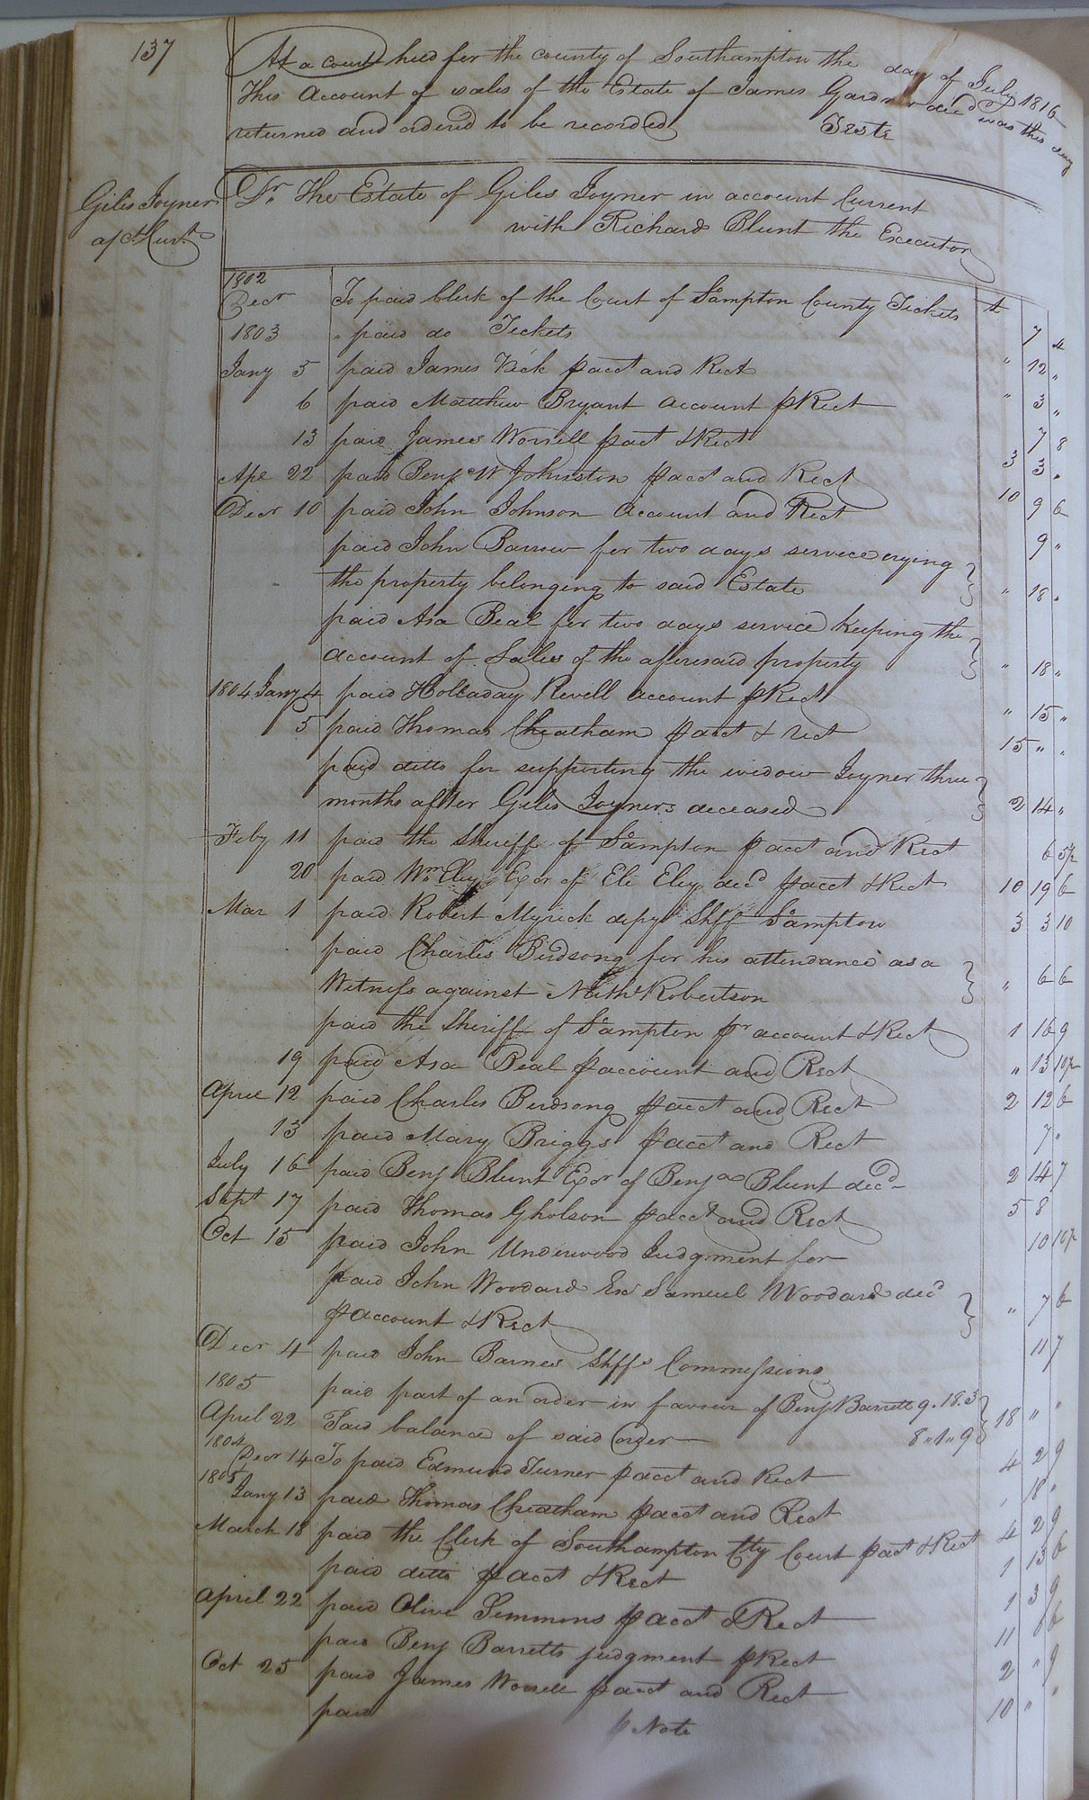 137
At a court held for the county of Southampton the day of July 1816
This Account of sales of the Estate of James Gardner decd was this day
returned and ordered to be recorded
Teste
Giles Joyner
a/c Curt
Dr. The Estate of Giles Joyner in account Current
with Richard Blunt the Executor
1802
Decr To paid Clerk of the Court of Sampton County Tickets £ 7 4
1803 " paid do Tickets " 12 "
Jany 5 paid James Vick pacct and Rect " 3 "
6 paid Matthew Bryant account pRect 7 8
13 paid James Worrell pact & Rect 3 3 "
Apl 22 paid Benj W Johnston pacct and Rect 10 9 6
Decr 10 paid John Johnson Account and Rect 9 "
paid John Barrow for two days service crying
the property belonging to said Estate " 18 "
paid Asa Beal for two days service keeping the
account of Sales of the aforesaid property " 18 "
1804 Jany 4 paid Holladay Revell account pRect " 15 "
5 paid Thomas Cheatham pacct & rect 15 " "
paid ditto for supporting the widow Joyner three
months after Giles Joyners deceased 2 14 "
Feby 11 paid the Sheriff of Sampton pacct and Rect 6 5½
20 paid Wm. Eley Exor of Eli Eley decd pacct & Rect 10 19 6
Mar 1 paid Robert Myrick depy Shff Sampton 3 3 10
paid Charles Birdsong for his attendance as a
Witness against Nath Robertson " 6 6
paid the Sheriff of Sampton pr account & Rect 1 16 9
19 paid Asa Beal paccount and Rect " 13 10½
April 12 paid Charles Birdsong pacct and Rect 2 12 6
13 paid Mary Briggs pacct and Rect 7 "
July 16 paid Benj Blunt Exor of Benja Blunt decd 2 14 7
Sept 17 paid Thomas Gholson pacct and Rect 5 8
Oct 15 paid John Underwood Judgment for 10 10½
paid John Woodard Exr Samuel Woodard decd
paccount & Rect " 7 6
Decr 4 paid John Barnes Shffs Commissions 11 7
1805 paid part of an order in favour of Benj Barrett 9.18.3
April 22 Paid balance of said order 8 " 1 " 9 18 " "
1804
Decr 14 To paid Edmund Turner pacct and Rect 4 2 9
1805
Jany 13 paid Thomas Cheatham pacct and Rect " 18 "
March 18 paid the Clerk of Southampton Cty Court pact & Rect 4 2 9
paid ditto pacct & Rect 1 13 6
April 22 paid Olive Simmons pacct & Rect 1 3 9
paid Benj Barretts judgment pRect 11 6 6
Oct 25 paid James Worrell pacct and Rect 2 " 9
paid p Note 10 " "